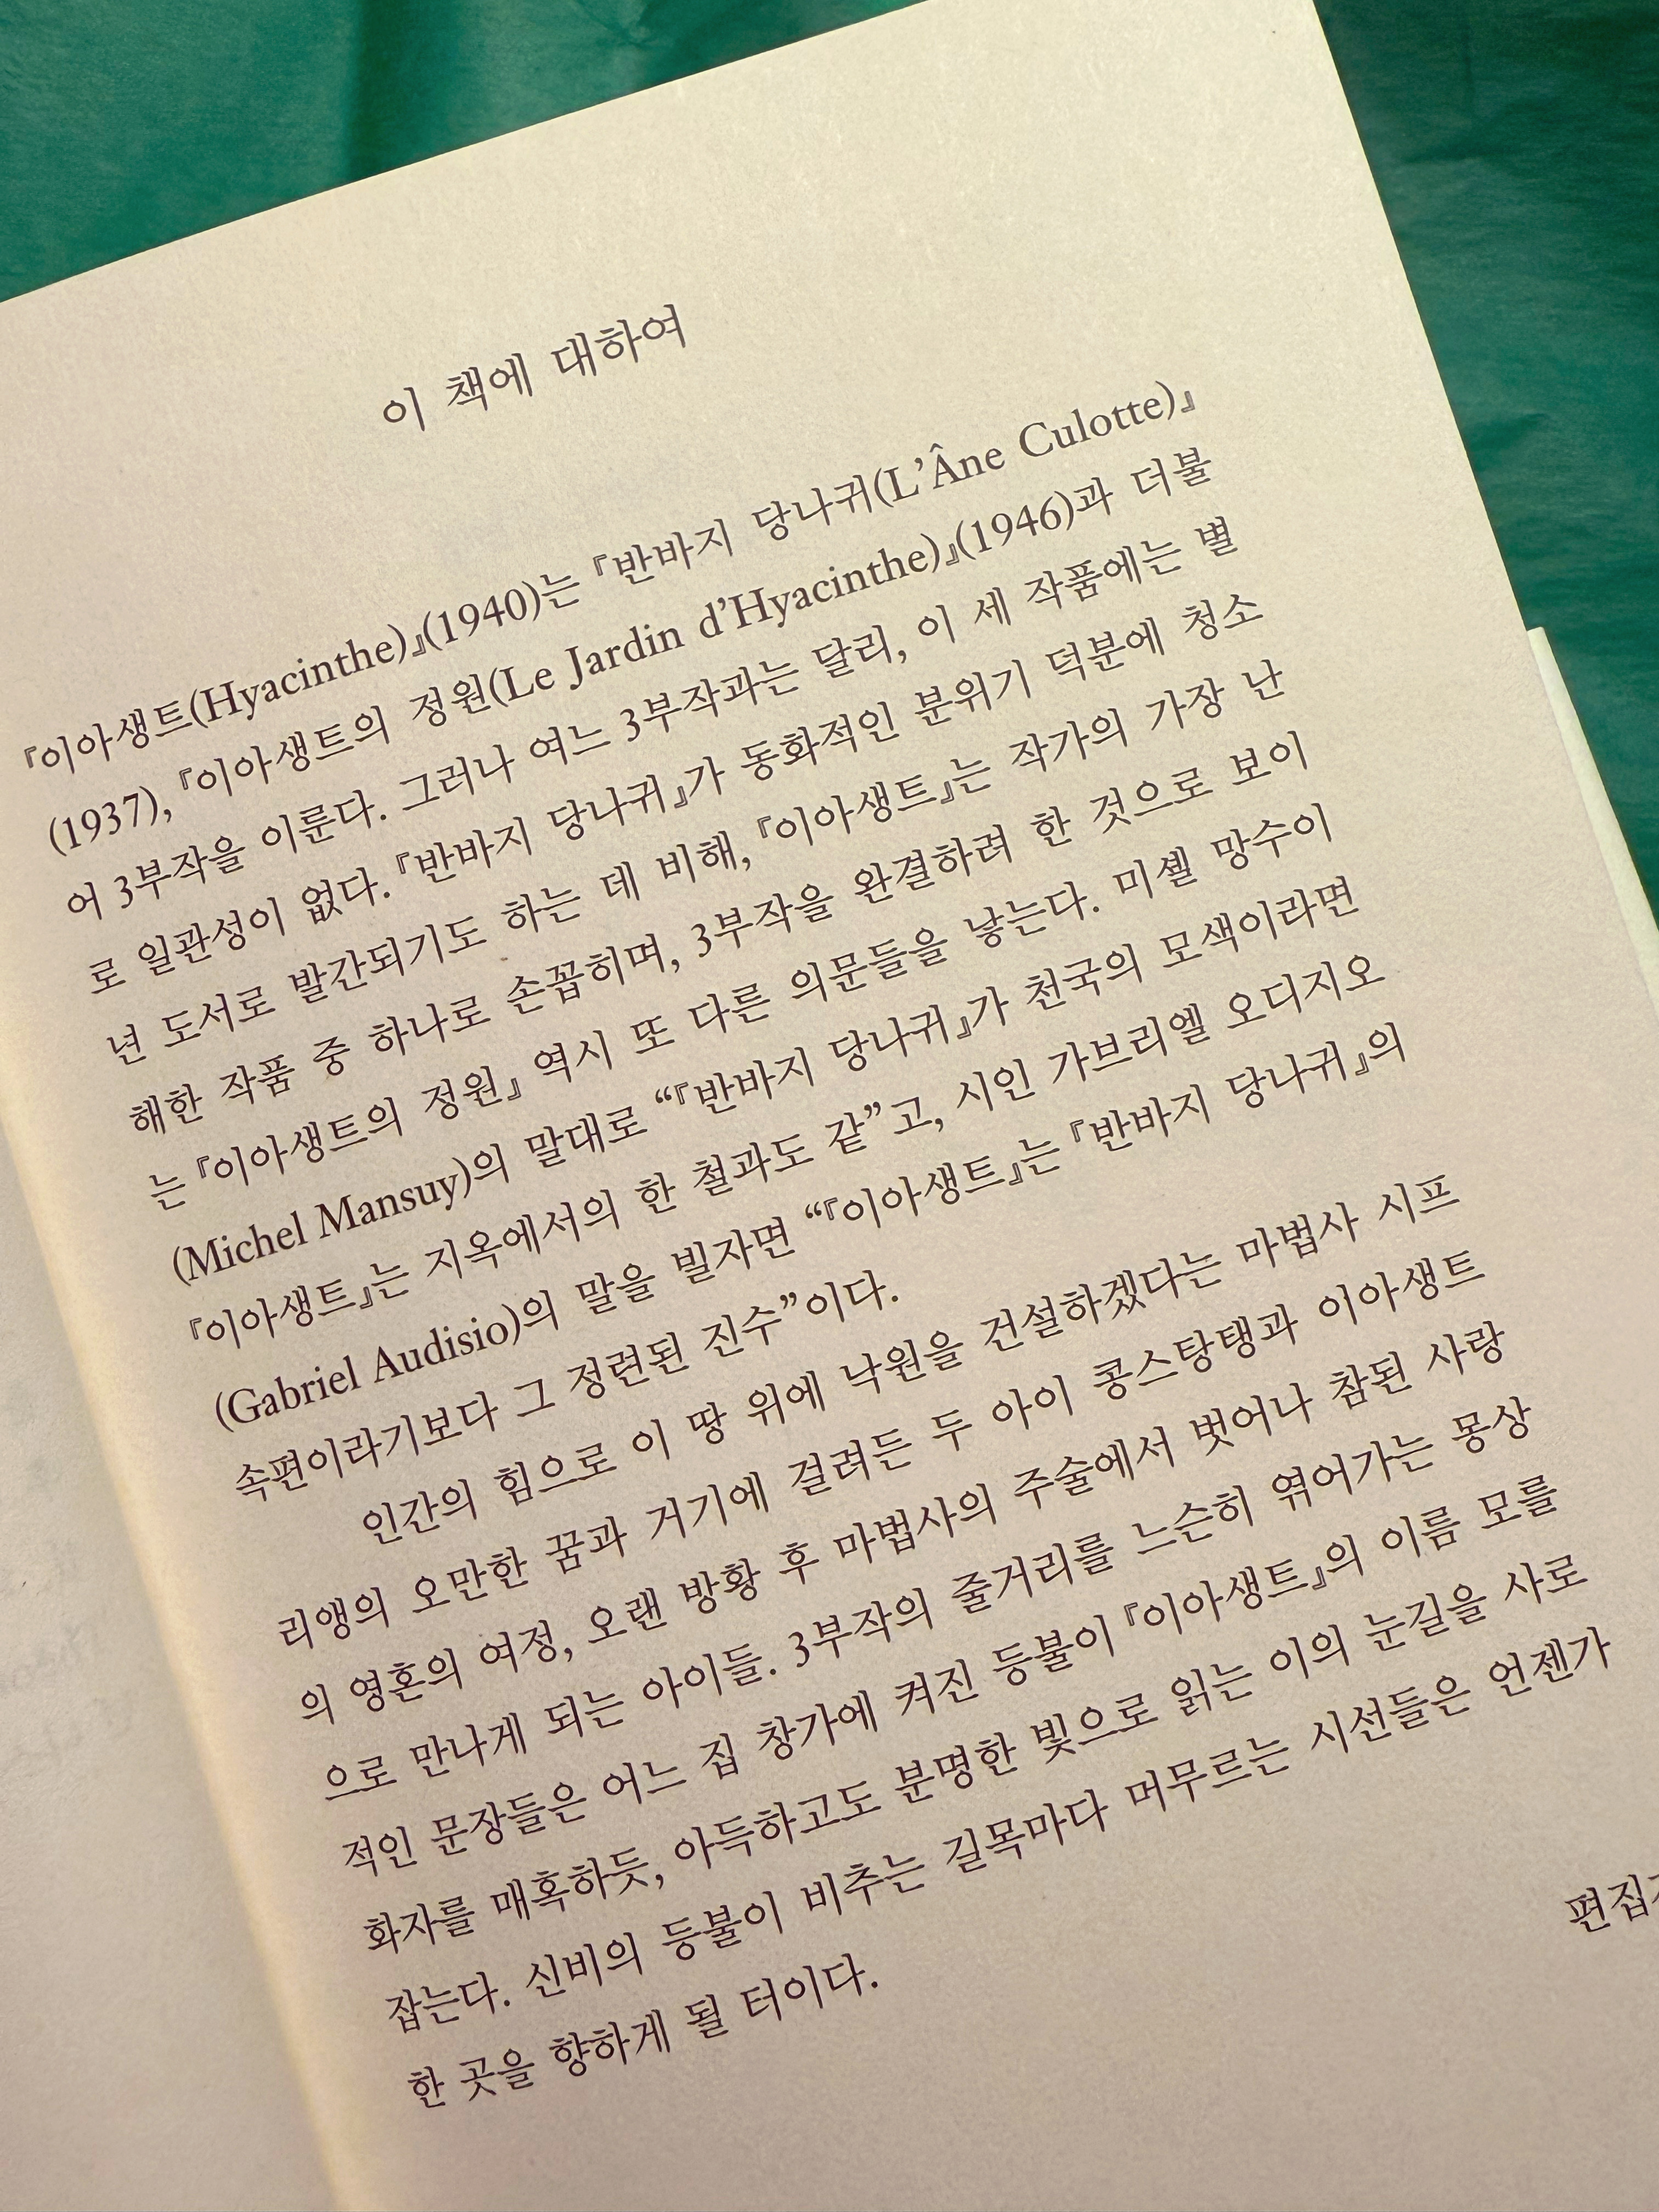 이 책에 대하여
『이아생트(Hyacinthe)』(1940)는 『반바지 당나귀(L’Âne Culotte)』
(1937), 『이아생트의 정원(Le Jardin d’Hyacinthe)』(1946)과 더불
어 3부작을 이룬다. 그러나 여느 3부작과는 달리, 이 세 작품에는 별
로 일관성이 없다. 『반바지 당나귀』가 동화적인 분위기 덕분에 청소
년 도서로 발간되기도 하는 데 비해, 『이아생트』는 작가의 가장 난
해한 작품 중 하나로 손꼽히며, 3부작을 완결하려 한 것으로 보이
는 『이아생트의 정원』 역시 또 다른 의문들을 낳는다. 미셸 망수이
(Michel Mansuy)의 말대로 “『반바지 당나귀』가 천국의 모색이라면
『이아생트』는 지옥에서의 한 철과도 같”고, 시인 가브리엘 오디지오
(Gabriel Audisio)의 말을 빌자면 “『이아생트』는 『반바지 당나귀』의
속편이라기보다 그 정련된 진수”이다.
인간의 힘으로 이 땅 위에 낙원을 건설하겠다는 마법사 시프
리앵의 오만한 꿈과 거기에 걸려든 두 아이 콩스탕탱과 이아생트
의 영혼의 여정, 오랜 방황 후 마법사의 주술에서 벗어나 참된 사랑
으로 만나게 되는 아이들. 3부작의 줄거리를 느슨히 엮어가는 몽상
적인 문장들은 어느 집 창가에 켜진 등불이 『이아생트』의 이름 모를
화자를 매혹하듯, 아득하고도 분명한 빛으로 읽는 이의 눈길을 사로
잡는다. 신비의 등불이 비추는 길목마다 머무르는 시선들은 언젠가
한 곳을 향하게 될 터이다.